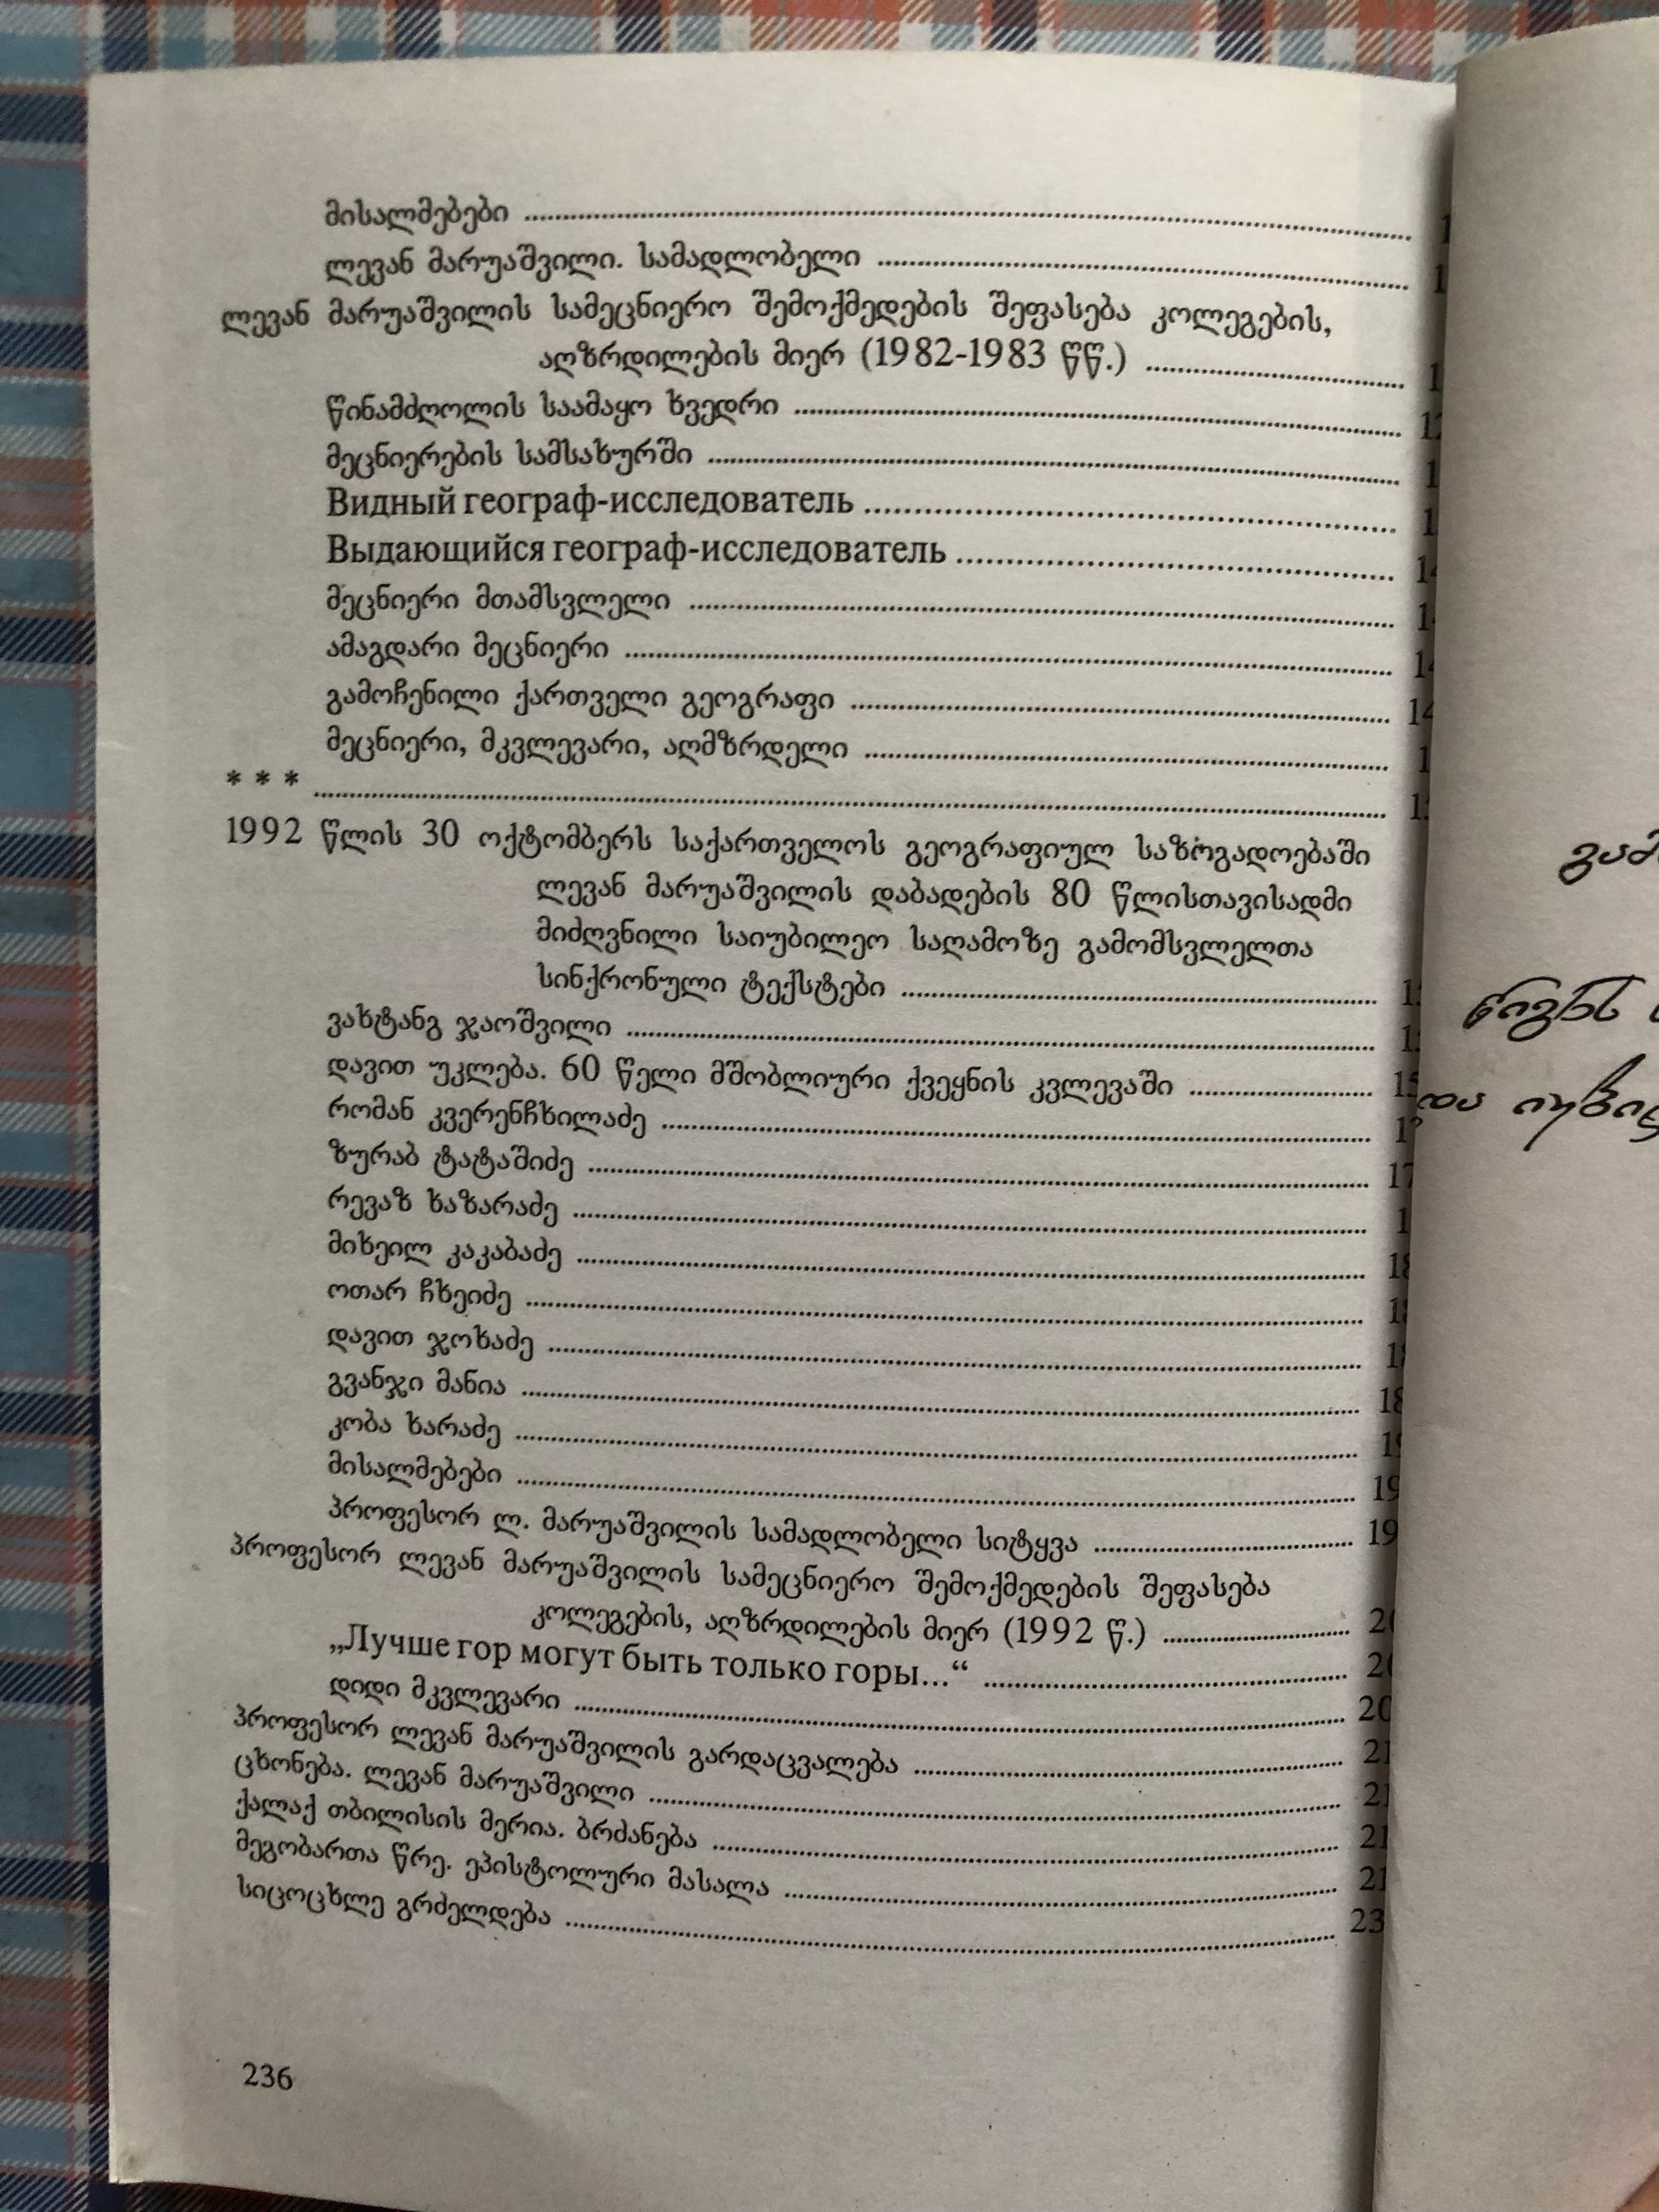 მისალმებები ........ 1
ლევან მარუაშვილი. სამადლობელი ........ 1
ლევან მარუაშვილის სამეცნიერო შემოქმედების შეფასება კოლეგების,
აღზრდილების მიერ (1982-1983 წწ.) ........ 1
წინამძღოლის საამაყო ხვედრი ........ 1
მეცნიერების სამსახურში ........ 1
Видный географ-исследователь ........ 1
Выдающийся географ-исследователь ........ 14
მეცნიერი მთამსვლელი ........ 1
ამაგდარი მეცნიერი ........ 14
გამოჩენილი ქართველი გეოგრაფი ........ 14
მეცნიერი, მკვლევარი, აღმზრდელი ........ 1
* * * ........ 1
1992 წლის 30 ოქტომბერს საქართველოს გეოგრაფიულ საზოგადოებაში
ლევან მარუაშვილის დაბადების 80 წლისთავისადმი
მიძღვნილი საიუბილეო საღამოზე გამომსვლელთა
სინქრონული ტექსტები ........ 1
ვახტანგ ჯაოშვილი ........ 1
დავით უკლება. 60 წელი მშობლიური ქვეყნის კვლევაში ........ 15
რომან კვერენჩხილაძე ........ 1
ზურაბ ტატაშიძე ........ 17
რევაზ ხაზარაძე ........ 1
მიხეილ კაკაბაძე ........ 18
ოთარ ჩხეიძე ........ 18
დავით ჯოხაძე ........ 18
გვანჯი მანია ........ 18
კობა ხარაძე ........ 19
მისალმებები ........ 19
პროფესორ ლ. მარუაშვილის სამადლობელი სიტყვა ........ 19
პროფესორ ლევან მარუაშვილის სამეცნიერო შემოქმედების შეფასება
კოლეგების, აღზრდილების მიერ (1992 წ.) ........ 20
„Лучше гор могут быть только горы...“ ........ 20
დიდი მკვლევარი ........ 20
პროფესორ ლევან მარუაშვილის გარდაცვალება ........ 21
ცხონება. ლევან მარუაშვილი ........ 21
ქალაქ თბილისის მერია. ბრძანება ........ 21
მეგობართა წრე. ეპისტოლური მასალა ........ 21
სიცოცხლე გრძელდება ........ 23
236
წიგნს
და